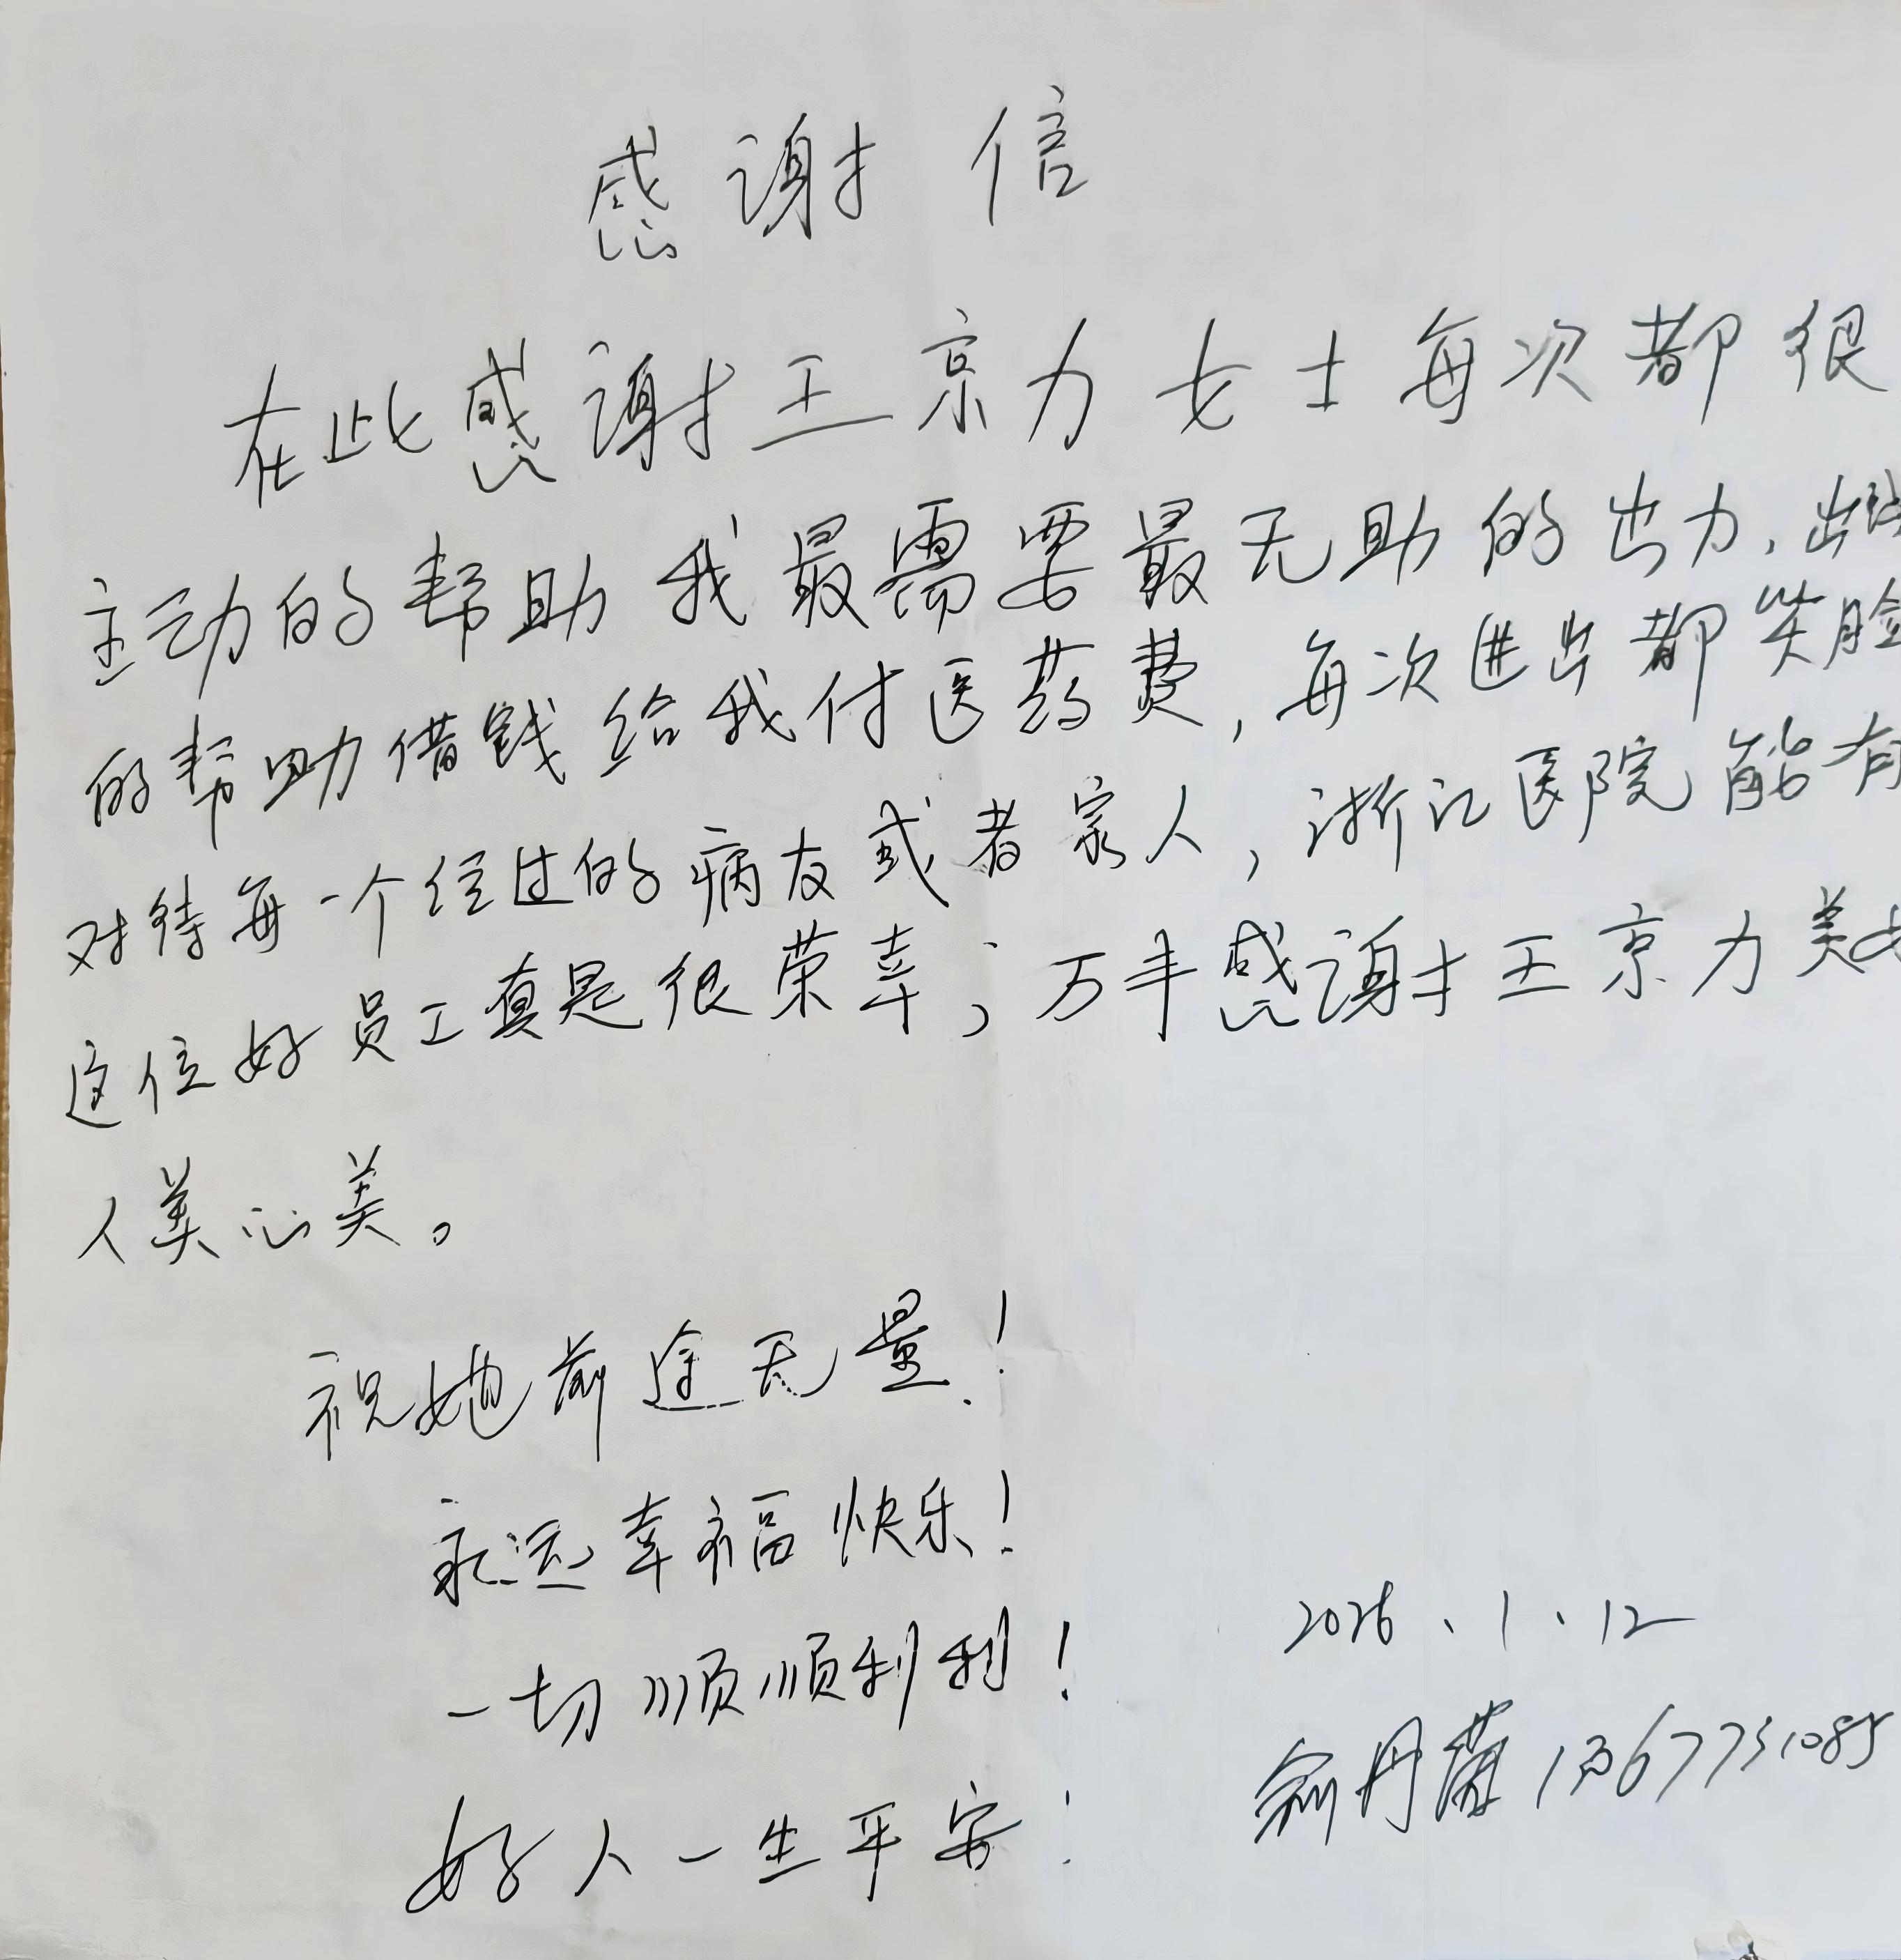 感谢信
在此感谢王京力女士每次都很
主动的帮助我最需要最无助的出力、出钱
的帮助借钱给我付医药费,每次进出都笑脸
对待每一个经过的病友或者家人,浙江医院能有
这位好员工真是很荣幸;万丰感谢王京力美女
人美心美。
祝她前途无量!
永远幸福快乐!
一切顺顺利利!
2026、1、12
俞丹 13677351085
好人一生平安!